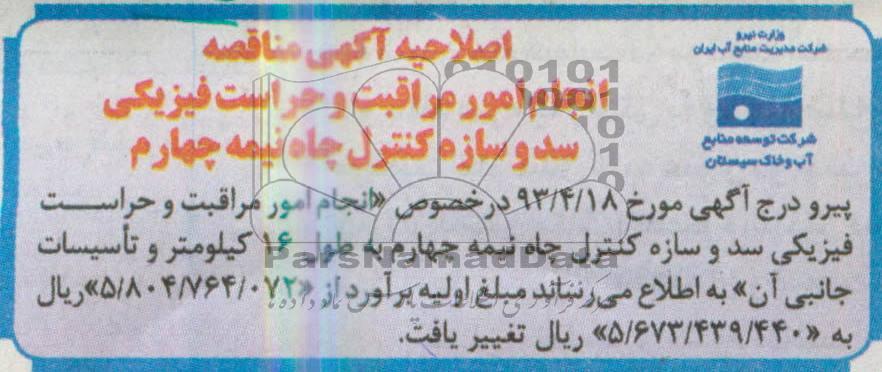 وزارت نیرو
شرکت مدیریت منابع آب ایران
شرکت توسعه منابع
آب و خاک سیستان
اصلاحیه آگهی مناقصه
انجام امور مراقبت و حراست فیزیکی
سد و سازه کنترل چاه نیمه چهارم
پیرو درج آگهی مورخ ۹۳/۴/۱۸ درخصوص «انجام امور مراقبت و حراست
فیزیکی سد و سازه کنترل چاه نیمه چهارم به طول کیلومتر و تأسیسات
جانبی آن» به اطلاع می‌رساند مبلغ اولیه برآورد از «۵/۸۰۴/۷۶۴/۰۷۲» ریال
به «۵/۶۷۳/۴۳۹/۴۴۰» ریال تغییر یافت.
ParsNamadData